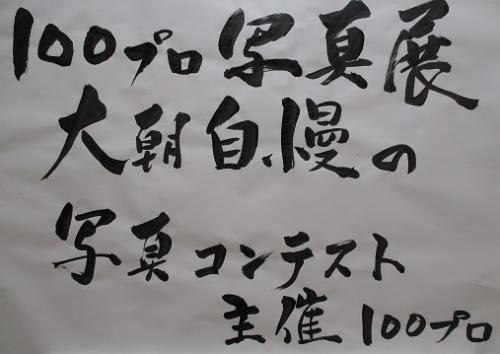 100プロ写真展
大朝自慢の
写真コンテスト
主催 100プロ